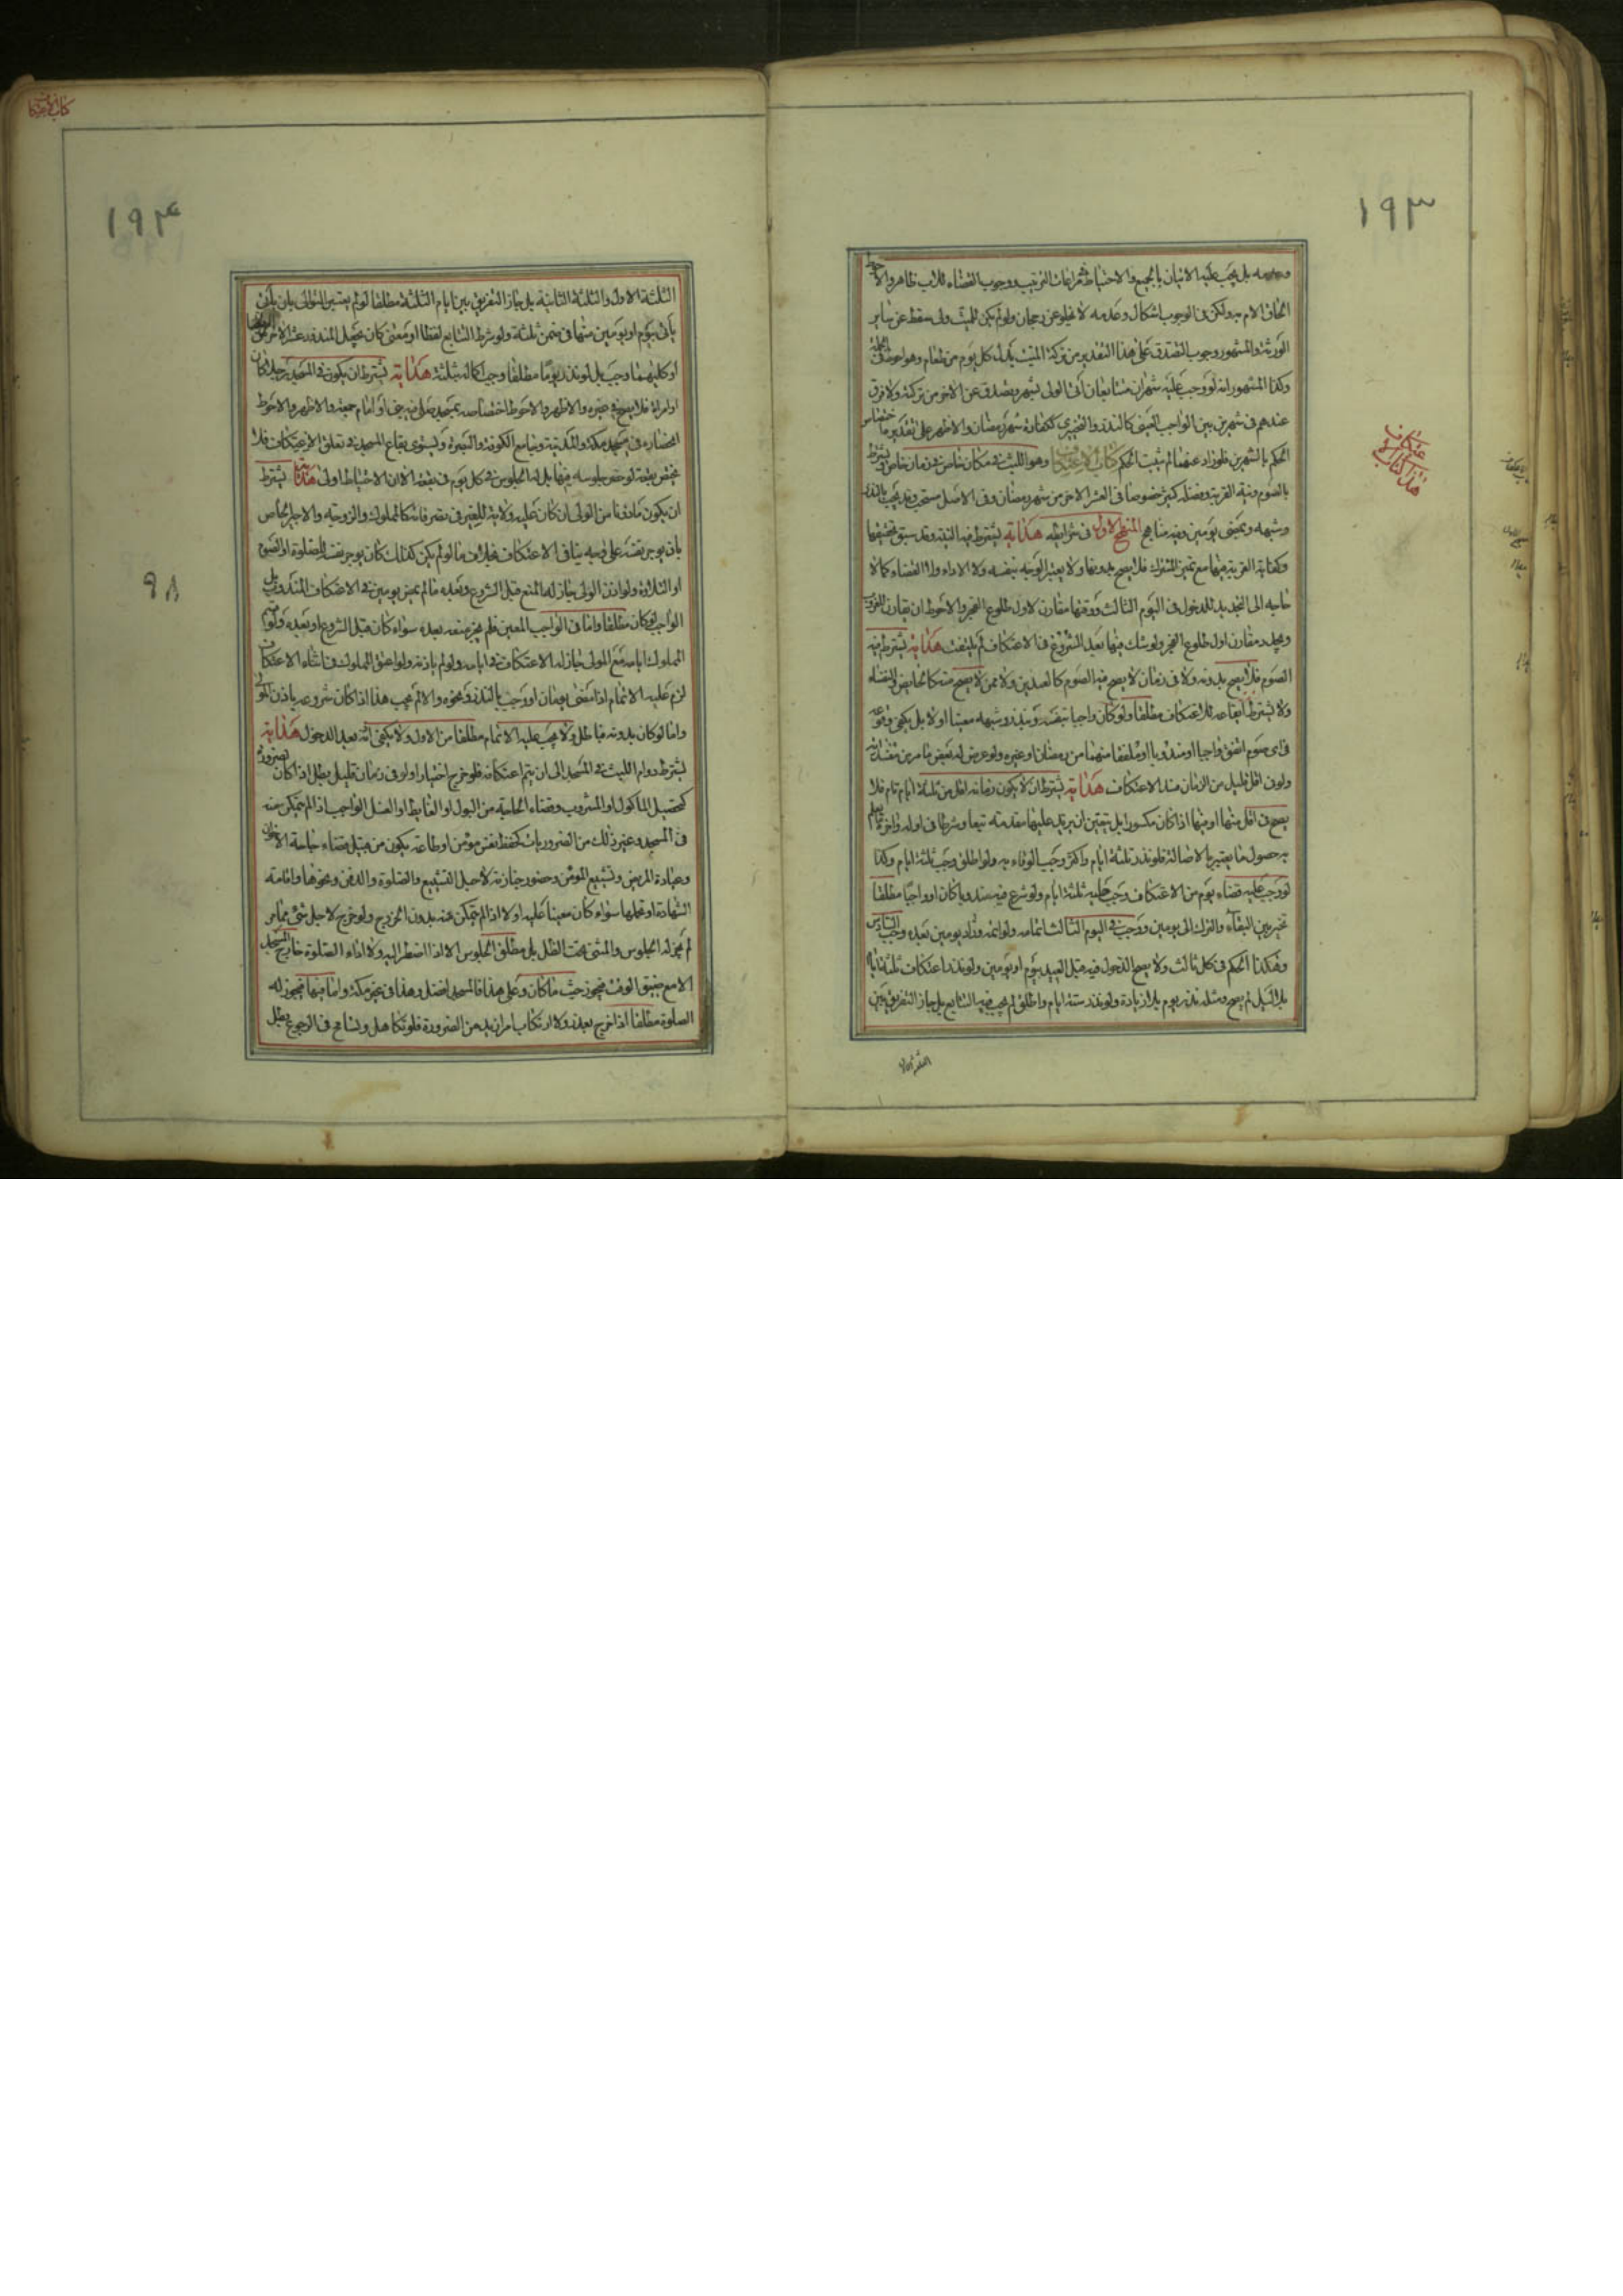 ١٩٣
وعدمه بل يجب عليه الاتيان بالجميع والاحتياط مراعات الترتيب ووجوب القضاء للاب ظاهر والاحوط
الحاق الام به ولكن في الوجوب اشكال وعدمه لا يخلو عن رجحان ولو لم يكن للميت ولى سقط عن ساير
الورثة والمشهور وجوب التصدق على هذا التقدير من تركة الميت بدل كل يوم من طعام وهو احوط في الجملة
وكذا المشهور انه لو وجب عليه شهران متتابعان اتى الولى بشهر وتصدق عن الاخر من تركته ولا فرق
عندهم في شهرين بين الواجب العينى كالنذر والتخييرى ككفارة شهر رمضان والاظهر على تقديره اختصاص
الحكم بالشهرين فلو زاد عنهما لم يثبت الحكم كتاب الاعتكاف وهو اللبث في مكان خاص وزمان خاص ويشترط
بالصوم ونية القربة وفضله كثير خصوصا في العشر الاخر من شهر رمضان وفى الاصل مستحب وقد يجب بالنذر
وشبهه وبمضى يومين وفيه مناهج المنهج الاول في شرايطه هداية يشترط فيه النية وقد سبق تحقيقها
وكفاية القربة فيها مع تميز المشترك فلا يصح بدونها ولا يعتبر الوجه بنفسه ولا الاداء ولا القضاء كما لا
حاجه الى التجديد للدخول في اليوم الثالث ووقتها مقارن لاول طلوع الفجر والاحوط ان يقارن للغروب
ويجدد مقارن اول طلوع الفجر ولو شك فيها بعد الشروع في الاعتكاف لم يلتفت هداية يشترط فيه
الصوم فلا يصح بدونه ولا في زمان لا يصح فيه الصوم كالعيدين ولا ممن لا يصح منه كالحايض والنفساء
ولا يشترط ايقاعه للاعتكاف مطلقا ولو كان واجبا بنفسه وبنذر وشبهه معينا اولا بل يكفى وقوعه
في اى صوم اتفق واجبا او مندوبا او ملفقا منهما من رمضان او غيره ولو عرض له نقيض ما مر من مفسداته
ولو في اقل قليل من الزمان فسد الاعتكاف هداية يشترط ان لا يكون زمانه اقل من ثلثة ايام تام فلا
يصح في اقل منها او منها اذا كان مكسورا بل يتعين ان يزيد عليها مقدمته تبعا وشرطا في اوله واخره ليعلم
به حصول ما يعتبر بالاصالة فلو نذر ثلثة ايام واكثر وجب الوفاء به ولو اطلق وجب ثلثة ايام وكذا
لو وجب عليه قضاء يوم من الاعتكاف وجب عليه ثلثة ايام ولو شرع فيه مندوبا كان او واجبا مطلقا
تخير بين البقاء والترك الى يومين ووجب في اليوم الثالث اتمامه ولو اتمه وزاد يومين بعده وجب السادس
وهكذا الحكم في كل ثالث ولا يصح الدخول فيه قبل العيد بيوم او يومين ولو نذر اعتكاف ثلثة ايام
بلا الليل لم يصح ومثله نذر يوم بلا زيادة ولو نذر ستة ايام واطلق لم يجب فيه التتابع بل جاز التفريق بين
هذا كتاب الاعتكاف
كتاب الاعتكاف
١٩٤
الثلثة الاولى والثلثة الثانية بل جاز التفريق بين ايام الثلثة مطلقا لو لم يتعين التوالى بان يأتى
يأتى بيوم او يومين منها في ضمن ثلثة ولو شرط التتابع لفظا او معنى كان يجعل المنذور عشر الاخر
او كليهما وجب بل لو نذر يوما مطلقا وجب اكماله بثلثة هداية يشترط ان يكون في المسجد رجلا كان
او امراة فلا يصح في غيره والاظهر والاحوط اختصاصه بمسجد صلى فيه نبى او امام جمعة والاظهر والاحوط
انحصاره في مسجد مكة والمدينة وجامع الكوفة والبصرة ويستوى بقاع المسجد في تعلق الاعتكاف فلا
يختص بقعة لو خص جلوسه فيها بل له الجلوس في كل يوم في بقعة الا ان الاحتياط اولى هداية يشترط
ان يكون ماذونا من الولى ان كان عليه ولاية للغير في تصرفاته كالمملوك والزوجية والاجير الخاص
بان يوجر نفسه على وجه ينافى الاعتكاف بخلاف ما لو لم يكن كذلك كان يوجر نفسه للصلوة او الصوم
او التلاوة ولو اذن الولى جاز له المنع قبل الشروع وبعده ما لم يمض يومين في الاعتكاف المندوب بل
الواجب لو كان مطلقا واما في الواجب المعين فلم يجز منعه بعده سواء كان قبل الشروع او بعده ولو
المملوك ايامه مع المولى جاز له الاعتكاف في ايامه ولو لم ياذنه ولو اعتق المملوك في اثناء الاعتكاف
لزم عليه الاتمام اذا مضى يومان او وجب بالنذر ونحوه والا لم يجب هذا اذا كان شروعه باذن المولى
واما لو كان بدونه فباطل ولا يجب عليه الاتمام مطلقا من الاول ولا يكفى اذنه بعد الدخول هداية
يشترط دوام اللبث في المسجد الى ان يتم اعتكافه فلو خرج اختيارا ولو في زمان قليل بطل اذا كان لضرورة
كتحصيل الماكول او المشروب وقضاء الحاجة من البول او الغايط او الغسل الواجب اذ لم يتمكن منه
في المسجد وغير ذلك من الضروريات كحفظ نفس مؤمن او طاعة يكون من قبيل قضاء حاجة الاخوان
وعيادة المريض وتشييع المؤمن وحضور جنازته لاجل التشييع والصلوة والدفن ونحوها واقامة
الشهادة او تحملها سواء كان معينا عليه اولا اذا لم يتمكن منه بدون الخروج ولو خرج لاجل شئ مما مر
لم يجز له الجلوس والمشى تحت الظل بل مطلق الجلوس الا اذا اضطر اليه ولا اداء الصلوة خارج المسجد
الا مع ضيق الوقت فيجوز حيث ما كان وعلى هذا فالمسجد افضل وهذا في غير مكة واما فيها فيجوز له
الصلوة مطلقا اذا خرج بعذر ولا ارتكاب امر ازيد من الضرورة فلو تكاهل وتسامح في الرجوع بطل
٩٨